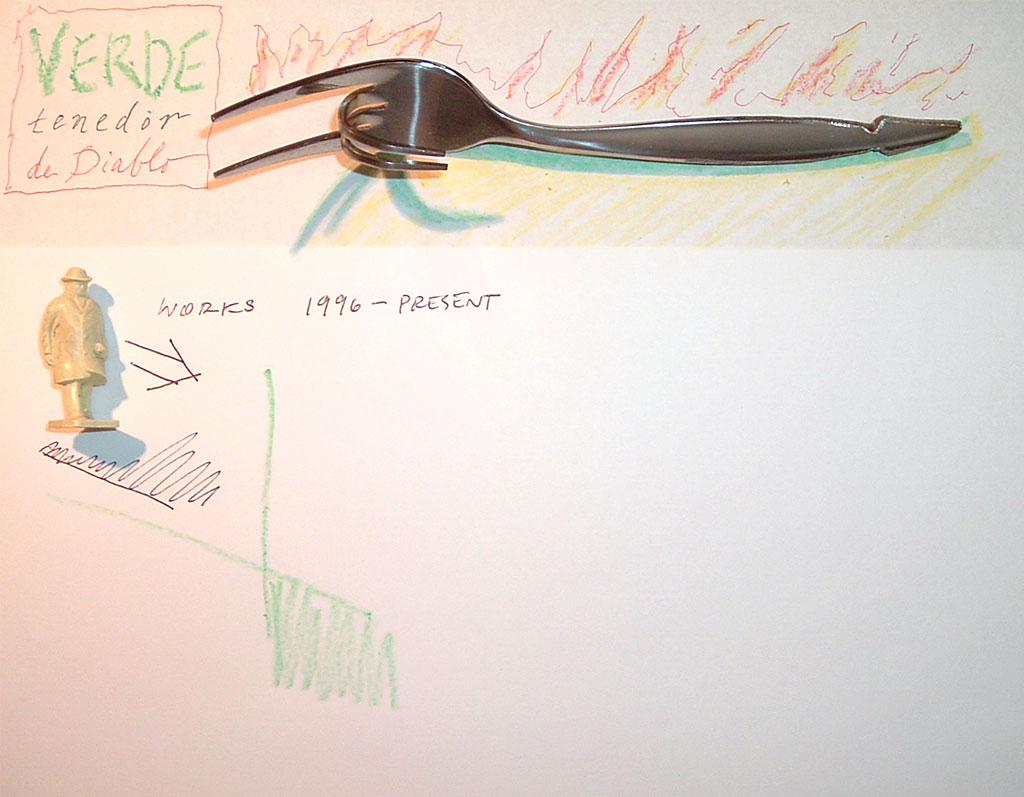 VERDE
tenedor
de Diablo
WORKS 1996 - PRESENT